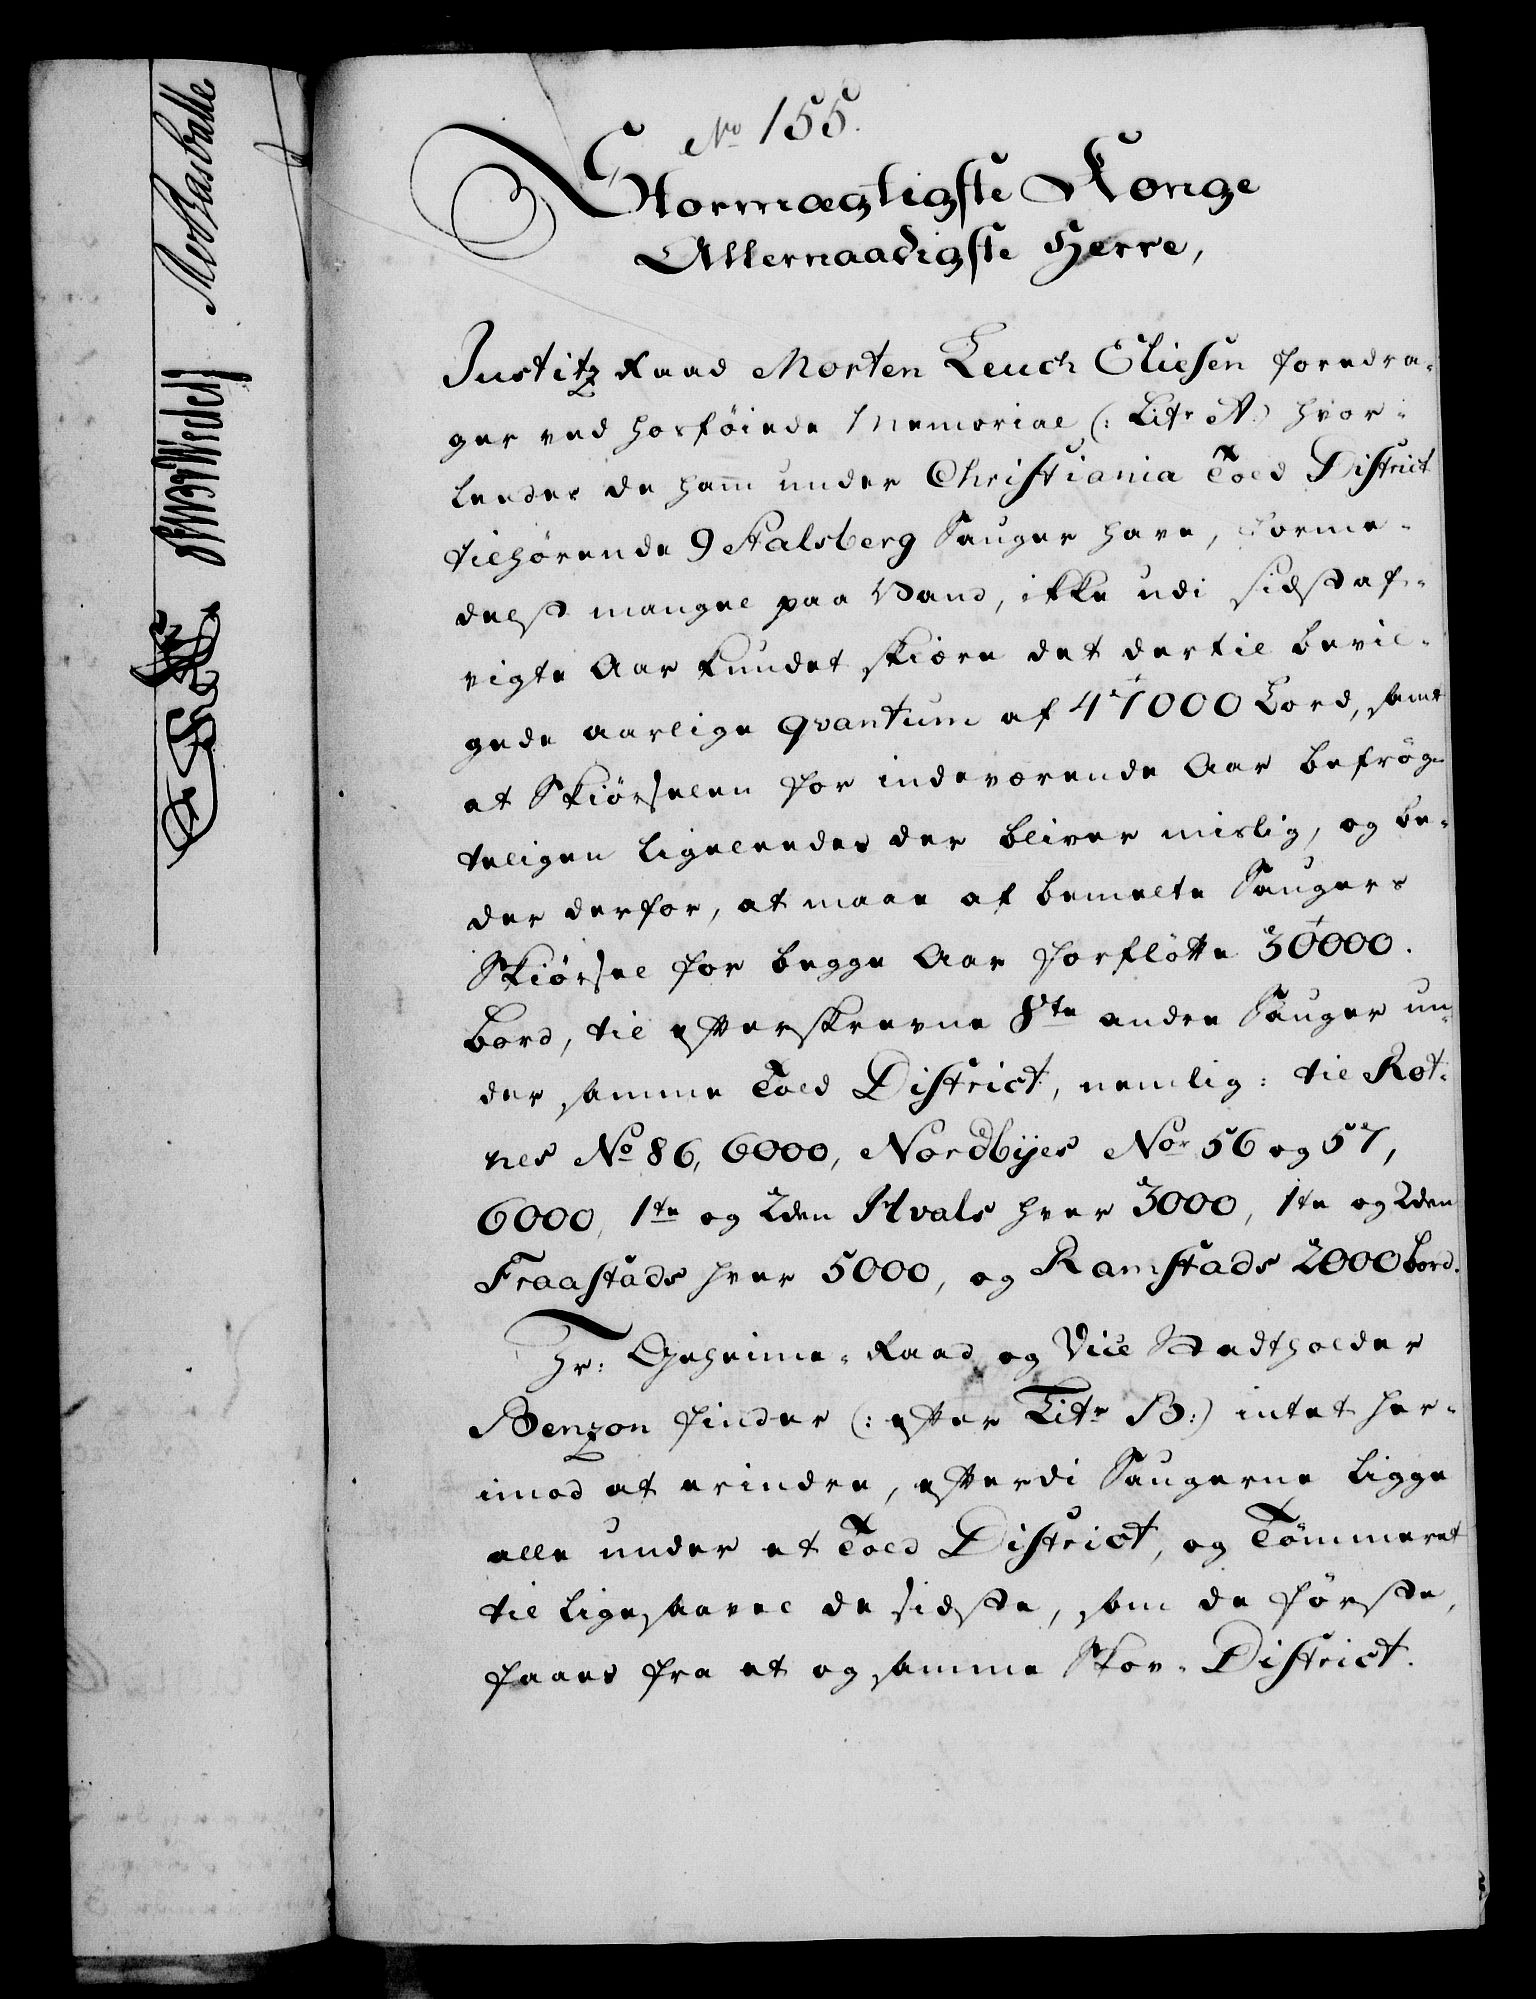 No 155.
Stormægtigste Konge
Allernaadigste Herre,
Justitz Raad Morten Leuch Eliesen foredra-
ger ved hosføiede Memorial (: Litr A:) hvor-
ledes de ham under Christiania Told District
tilhørende 9 Stalsberg Sauger have, forme-
delst mangel paa Vand, ikke udi sidst af-
vigte Aar kundet skiære det dertil bevil-
gede aarlige qvantum af 47000 Bord, samt
at Skiørselen for indeværende Aar befrög-
teligen ligeledes der bliver mislig, og be-
der derfor, at maae af bemelte Saugers
Skiørsel for begge Aar forflötte 30000.
Bord, til efterskrevne 8te andre Sauger un-
der samme Told District, nemlig: til Rot-
nes No 86, 6000, Nordbyes Nor 56 og 57,
6000, 1te og 2den Hvals hver 3000, 1te og 2den
Fraastads hver 5000, og Ramstads 2000 Bord.
Hr: Geheime-Raad og Vice Stadtholder
Benzon finder (: efter Litr B:) intet her-
imod at erindre, efterdi Saugerne ligge
alle under et Told District, og Tömmeret
til ligesaavel de sidste, som de første,
faaes fra et og samme Skov-District.